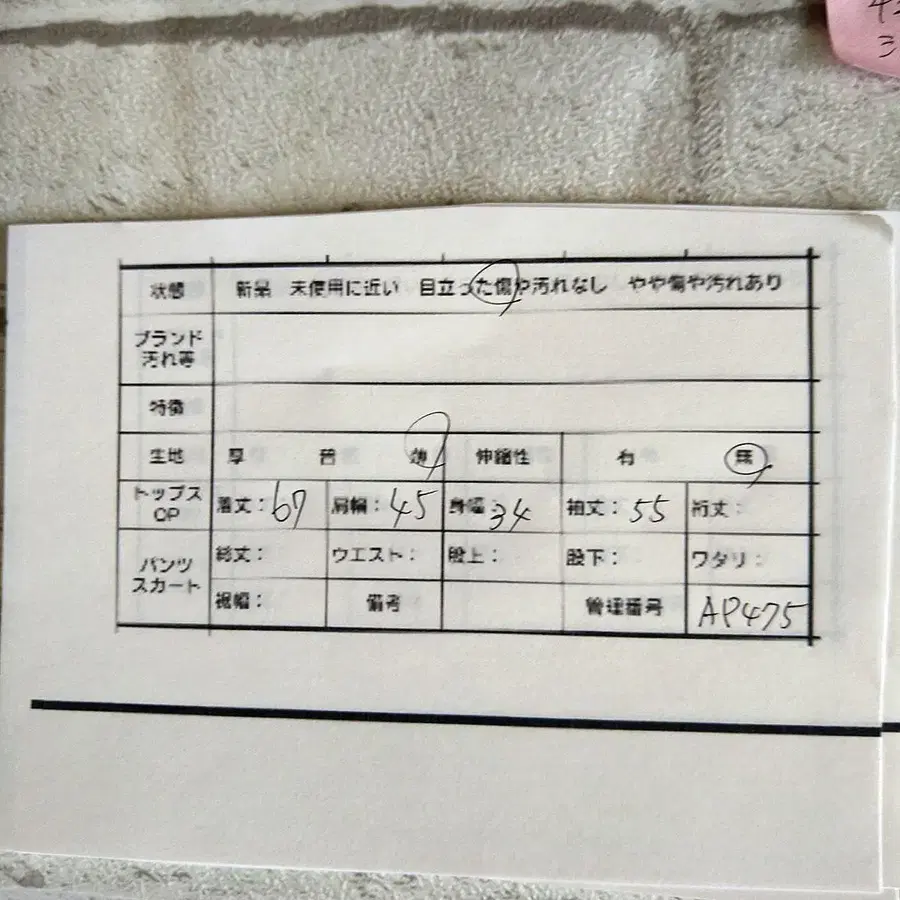 状態 新品 未使用に近い 目立った傷や汚れなし やや傷や汚れあり
ブランド
汚れ等
特徴
生地 厚 普 薄 伸縮性 有 無
トップス
OP
着丈: 67 肩幅: 45 身幅: 34 袖丈: 55 裄丈:
パンツ
スカート
総丈: ウエスト: 股上: 股下: ワタリ:
裾幅: 備考 管理番号 AP475